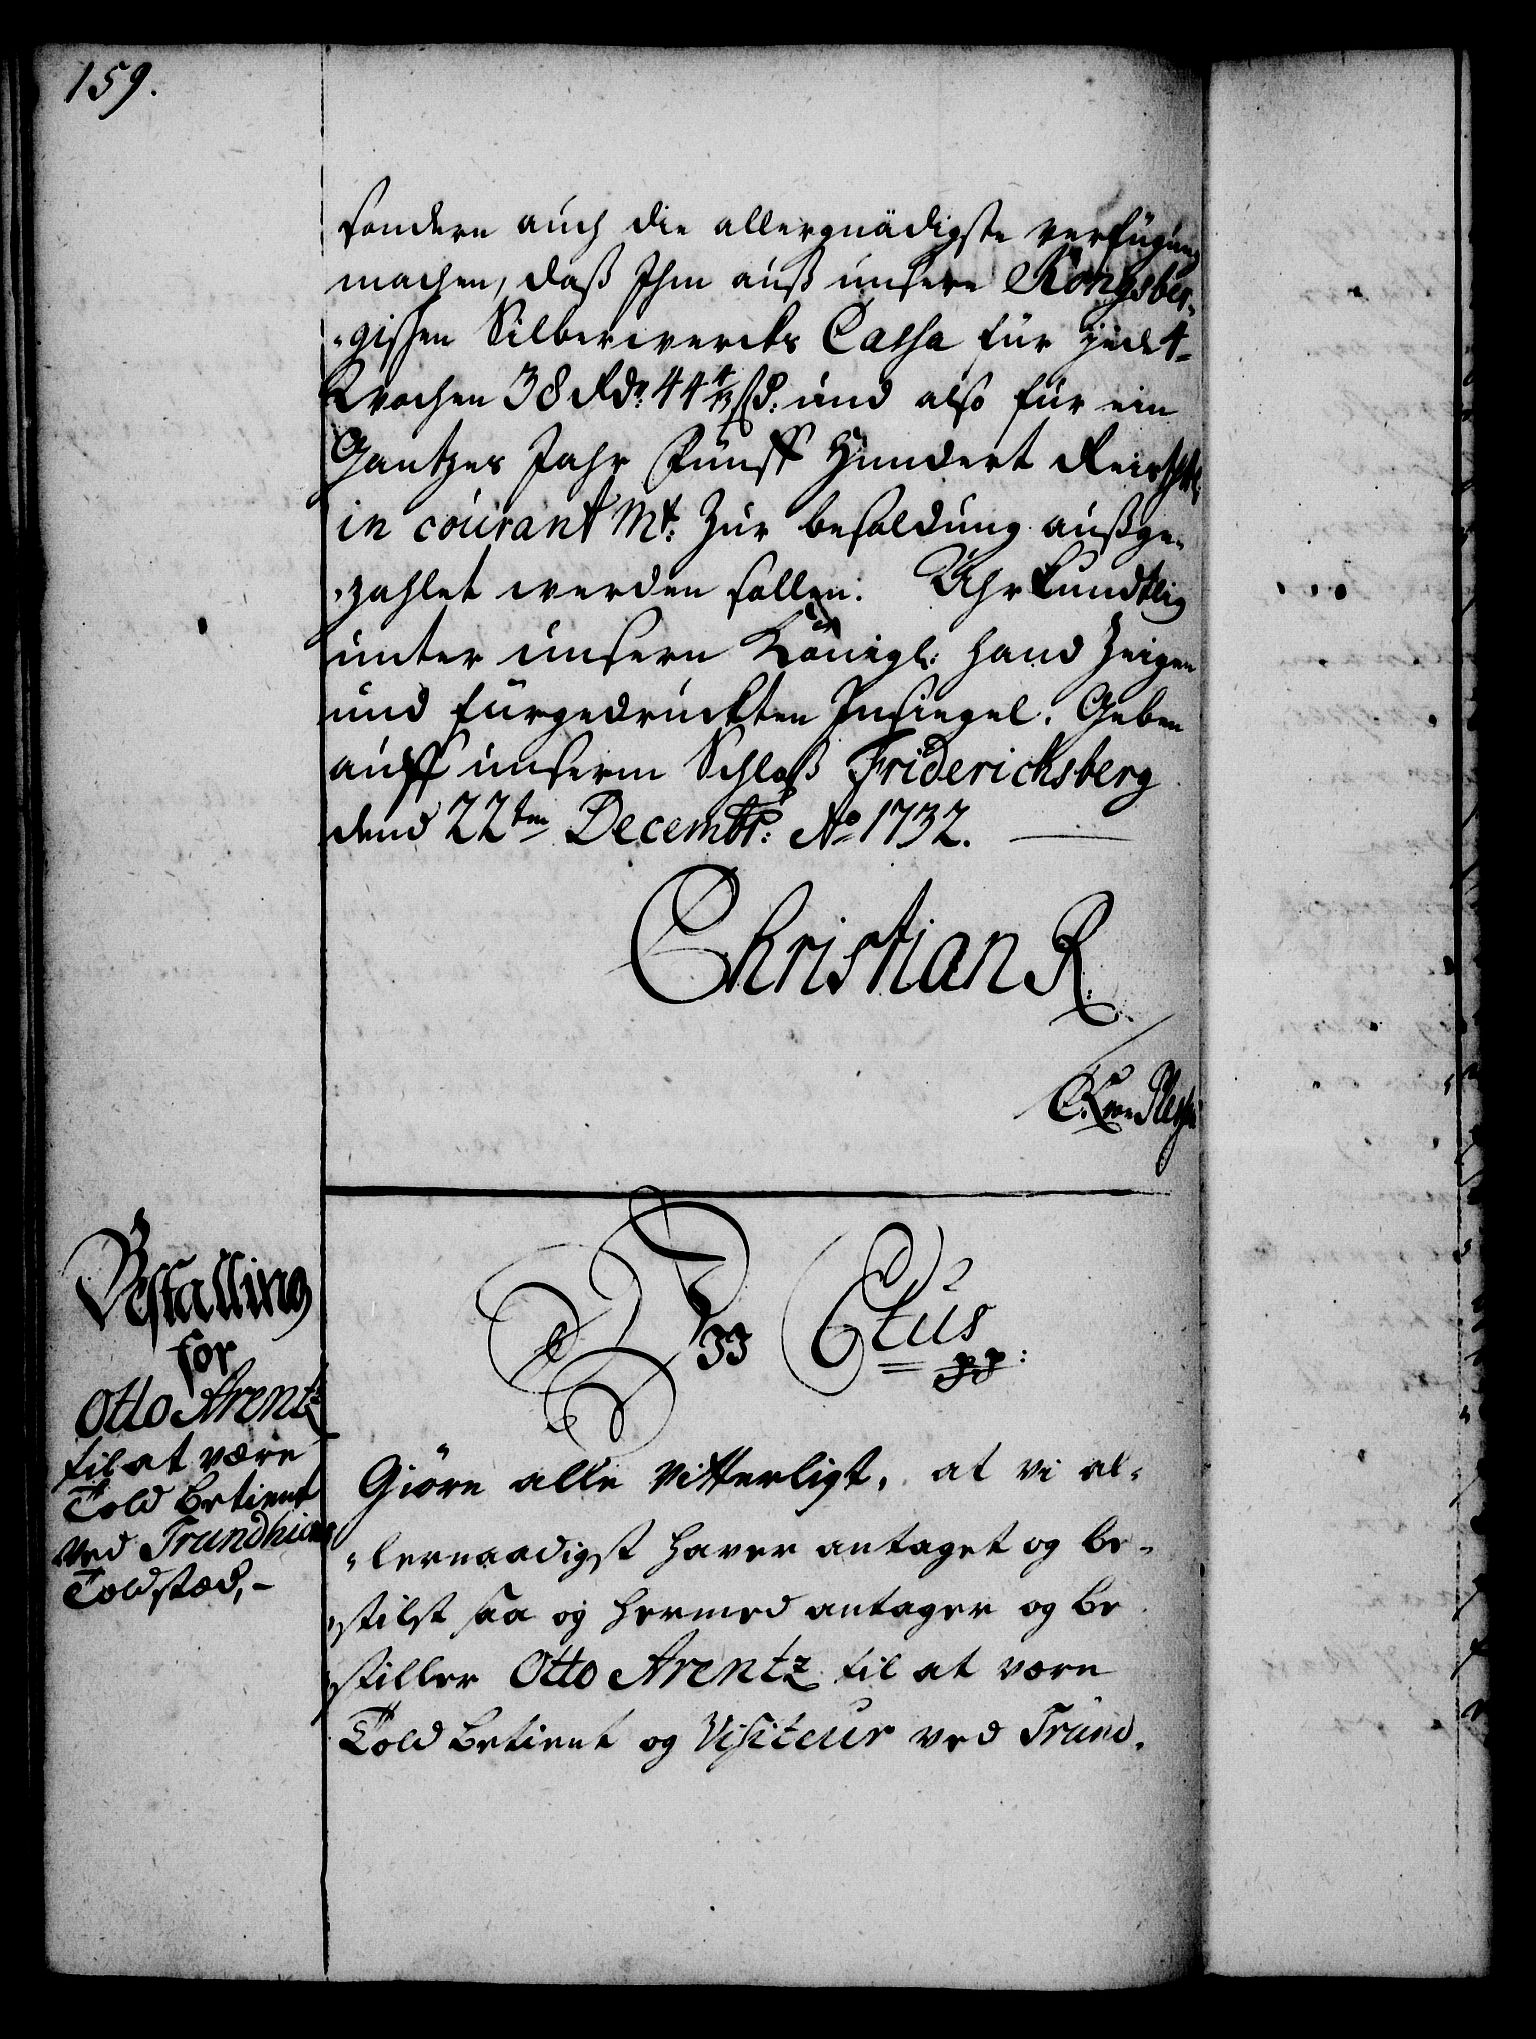 159.
sondern auch die allergnädigste verfügung
machen, daß Ihm auß unsere Kongsber-
-gischen Silberwercks Cassa für jede 4-
Wochen 38 Rdr: 44 4/13 ßd: und also für ein
Gantzes Jahr Fünff Hundert Reichsthl:
in courant Mt: Zur besoldung außge-
-zahlet werden sollen. Uhrkundtlig
unter unsern Königl: Hand Zeigen
und fürgedruckten Insiegel. Geben
auff unserm Schloß Friderichsberg
dend 22ten Decembr: Ao 1732.
Christian R.
C. A. von Plessen
Bestalling
for
Otto Arentz
til at være
Told betient
ved Trundhiems
Toldsted,-
Vii C6tus
pp:
Giöre alle vitterligt, at vi al-
-lernaadigst haver antaget og be-
-stilt saa og hermed antager og be
stiller Otto Arentz til at være
Told betient og Visiteur ved Trund-